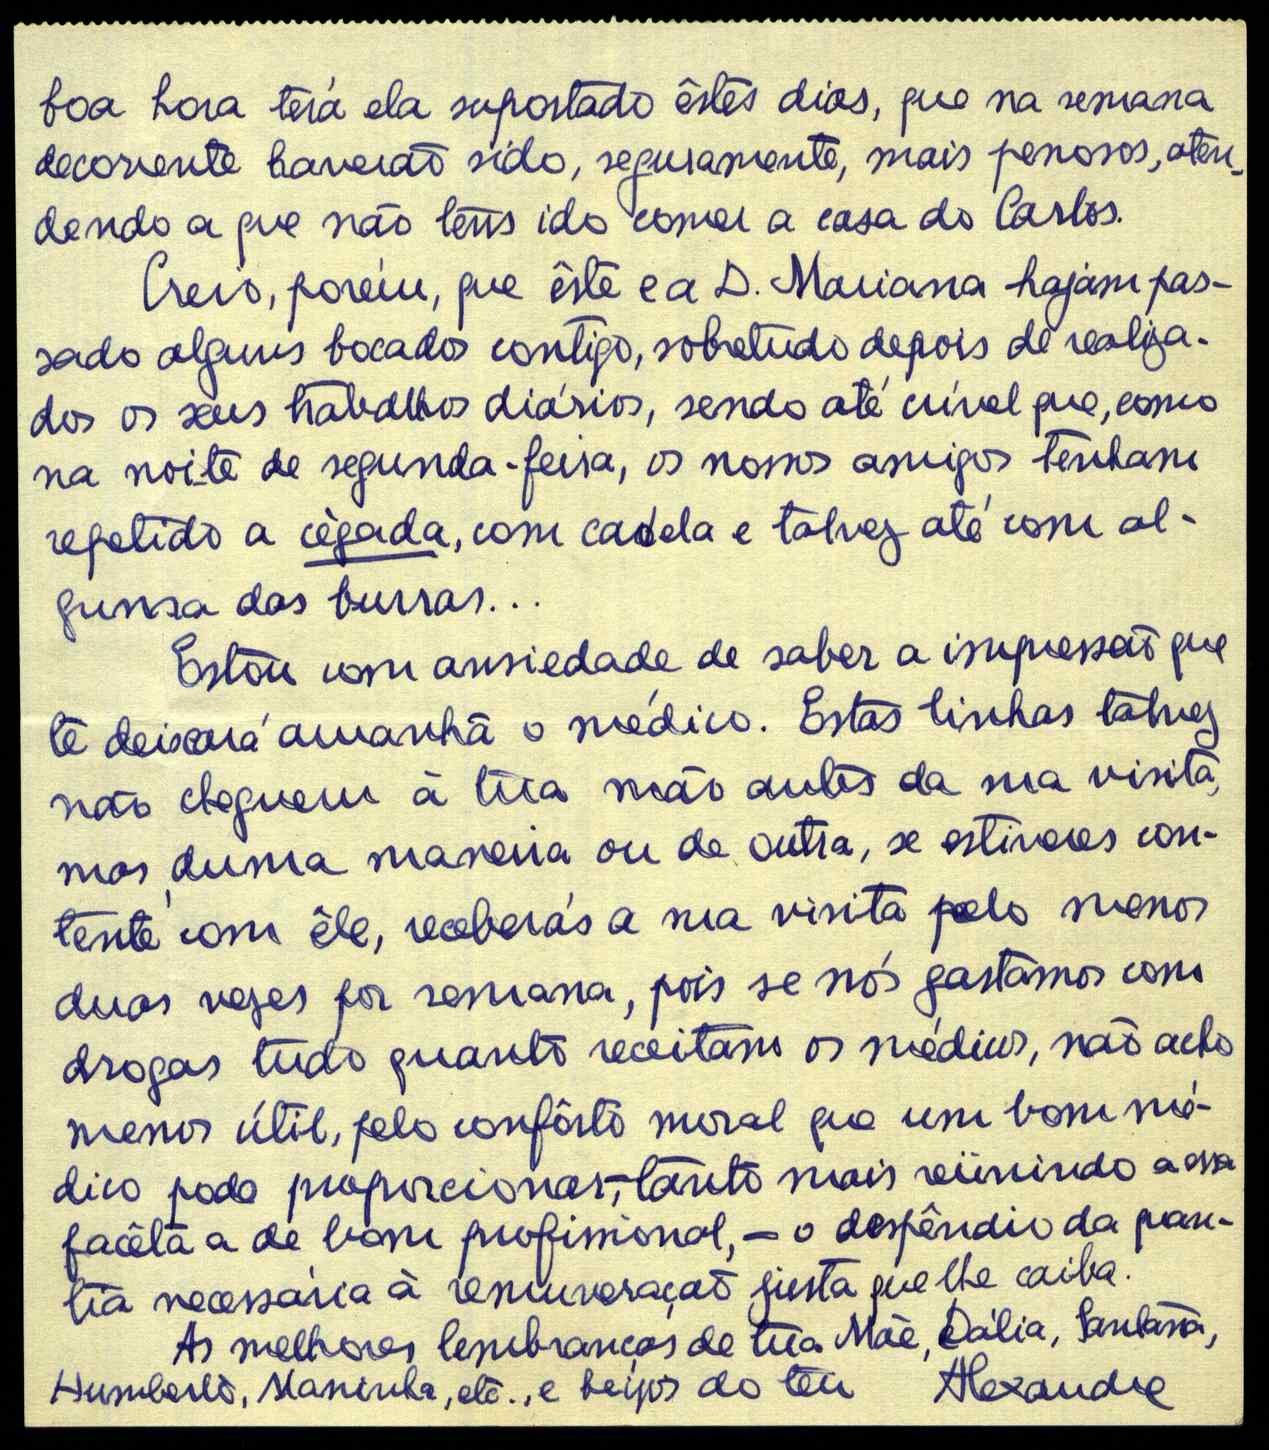 boa hora terá ela suportado êstes dias, que na semana
decorrente haverão sido, seguramente, mais penosos, aten-
dendo a que não tens ido comer a casa do Carlos.
Creio, porém, que êste e a D. Mariana hajam pas-
sado alguns bocados contigo, sobretudo depois de realiza-
dos os seus trabalhos diários, sendo até crível que, como
na noite de segunda-feira, os nossos amigos tenham
repetido a cègada, com cadela e talvez até com al-
guma das burras...
Estou com ansiedade de saber a impressão que
te deixará amanhã o médico. Estas linhas talvez
não cheguem à tua mão antes da sua visita,
mas, duma maneira ou de outra, se estiveres con-
tente com êle, receberás a sua visita pelo menos
duas vezes por semana, pois se nós gastamos com
drogas tudo quanto receitam os médicos, não acho
menos útil, pelo confôrto moral que um bom mé-
dico pode proporcionar, tanto mais reünindo a essa
facêta a de bom profissional, – o despêndio da quan-
tia necessária à remuneração justa que lhe caiba.
As melhores lembranças de tua Mãe, Dália, Santana,
Humberto, Maninha, etc., e beijos do teu Alexandre